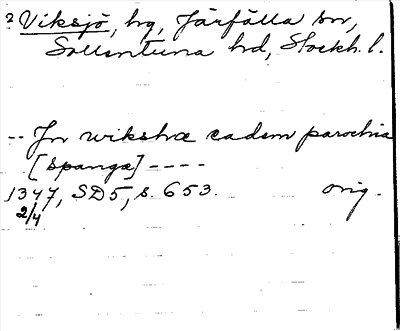 ? Viksjö, hg, Järfälla sn,
Sollentuna hd, Stockh. l.
-- Jn wikshœ eadem parochia
[Spanga] ----
1347, SD5, s. 653. orig.
2/4